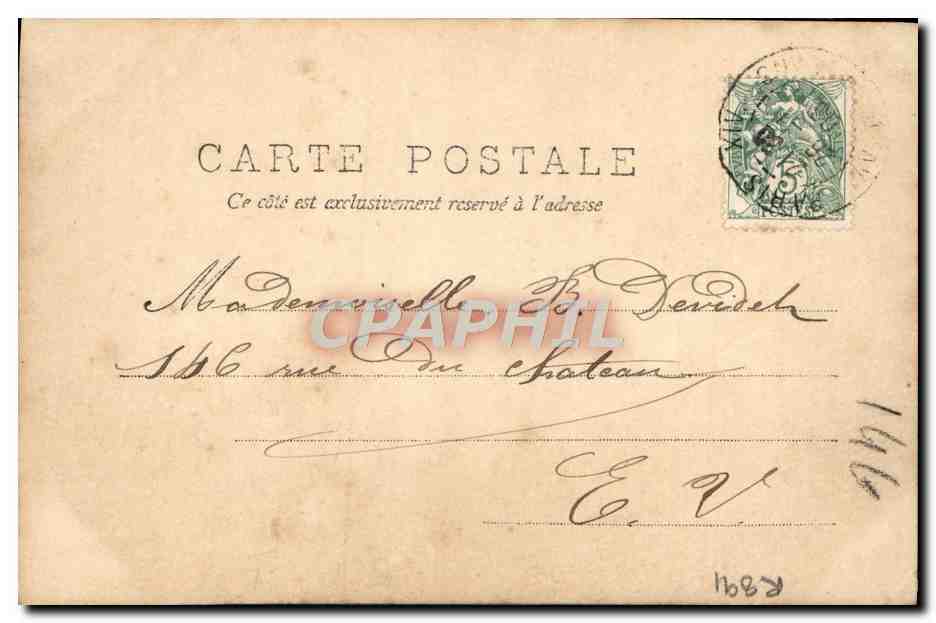 CARTE POSTALE
Ce côté est exclusivement reservé à l'adresse
PARIS
XIV
5
Mademoiselle B. Devidch
CPAPHIL
146 rue du Chateau
E. V.
146
R391